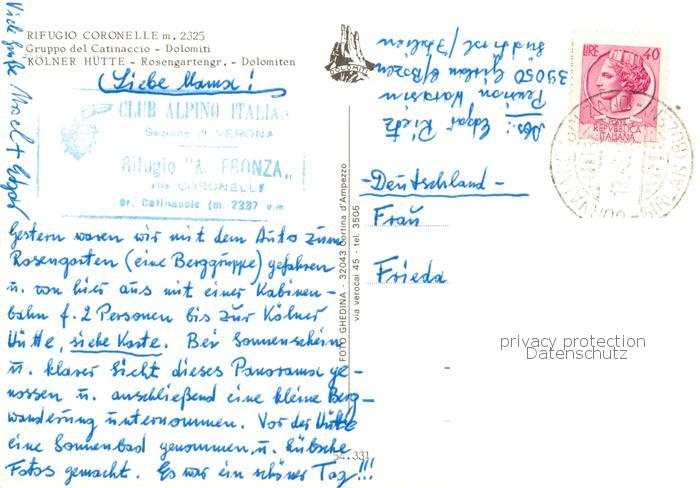 RIFUGIO CORONELLE m. 2325
Gruppo del Catinaccio - Dolomiti
KÖLNER HÜTTE - Rosengartengr. - Dolomiten
Liebe Mama!
CLUB ALPINO ITALIANO
Sezione di VERONA
Rifugio "A. FRONZA"
alle CORONELLE
Gr. Catinaccio (m. 2337 s.m.
Gestern waren wir mit dem Auto zum
Rosengarten (eine Berggruppe) gefahren
u. von hier aus mit einer Kabinen-
bahn f. 2 Personen bis zur Kölner
Hütte, siehe Karte. Bei Sonnenschein
u. klarer Sicht dieses Panorama ge-
nossen u. anschließend eine kleine Berg-
wanderung unternommen. Vor der Hütte
eine Sonnenbad genommen u. hübsche
Fotos gemacht. Es war ein schöner Tag!!!
Viele Grüße
+ Edgar
FOTO GHEDINA - 32043 Cortina d'Ampezzo
via verocai 45 - tel. 3505
54.331
DOLOMITI
Abs.: Edgar Rietz
Pension
39050 Girlan b/Bozen
Südtirol/Italien
LIRE 40
POSTE
REPVBBLICA
ITALIANA
-Deutschland-
Frau
Frieda
privacy protection
Datenschutz